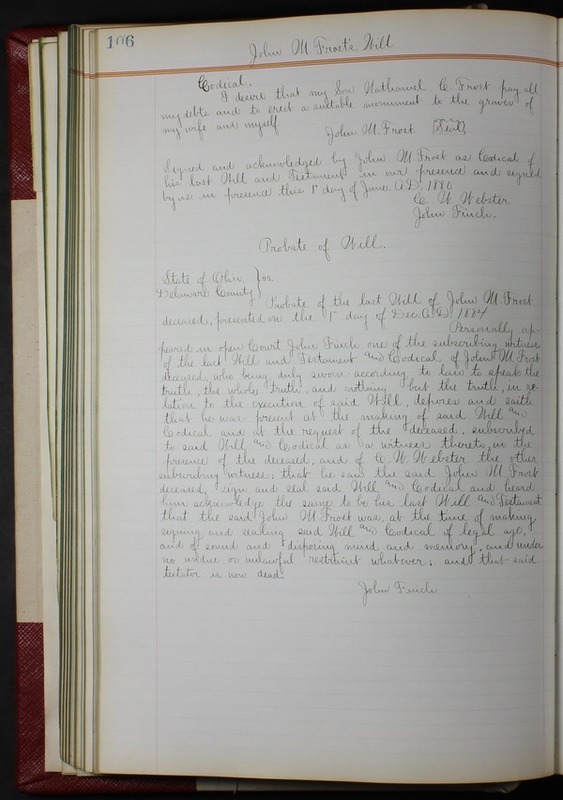 106
John M Frost's Will
Codical.
I desire that my Son Nathaniel C. Frost pay all
my debts and to erect a suitable monument to the graves of
my wife and myself
John M. Frost. Seal
Signed and acknowledged by John M. Frost as Codical of
his last Will and Testament in our presence and signed
by us in presence this 1st day of June A.D. 1880
C. W. Webster
John Finch.
Probate of Will.
State of Ohio, } ss.
Delaware County
Probate of the last Will of John M. Frost
deceased, presented on the 1st day of Dec. A.D. 1884
Personally ap-
peared in open Court John Finch one of the subscribing witness
of the last Will and Testament and Codical of John M Frost
deceased, who being duly sworn according to law to speak the
truth, the whole truth, and nothing but the truth, in re-
lation to the execution of said Will, deposes and saith
that he was present at the making of said Will and
Codical and at the request of the deceased, subscribed
to said Will and Codical as a witness thereto, in the
presence of the deceased, and of C. W. Webster the other
subscribing witness; that he saw the said John M. Frost
deceased, sign and seal said Will and Codical and heard
him acknowledge the same to be his last Will and Testament
that the said John M Frost was, at the time of making,
signing and sealing said Will and Codical of legal age,
and of sound and disposing mind and memory, and under
no undue or unlawful restraint whatever; and that said
testator is now dead.
John Finch